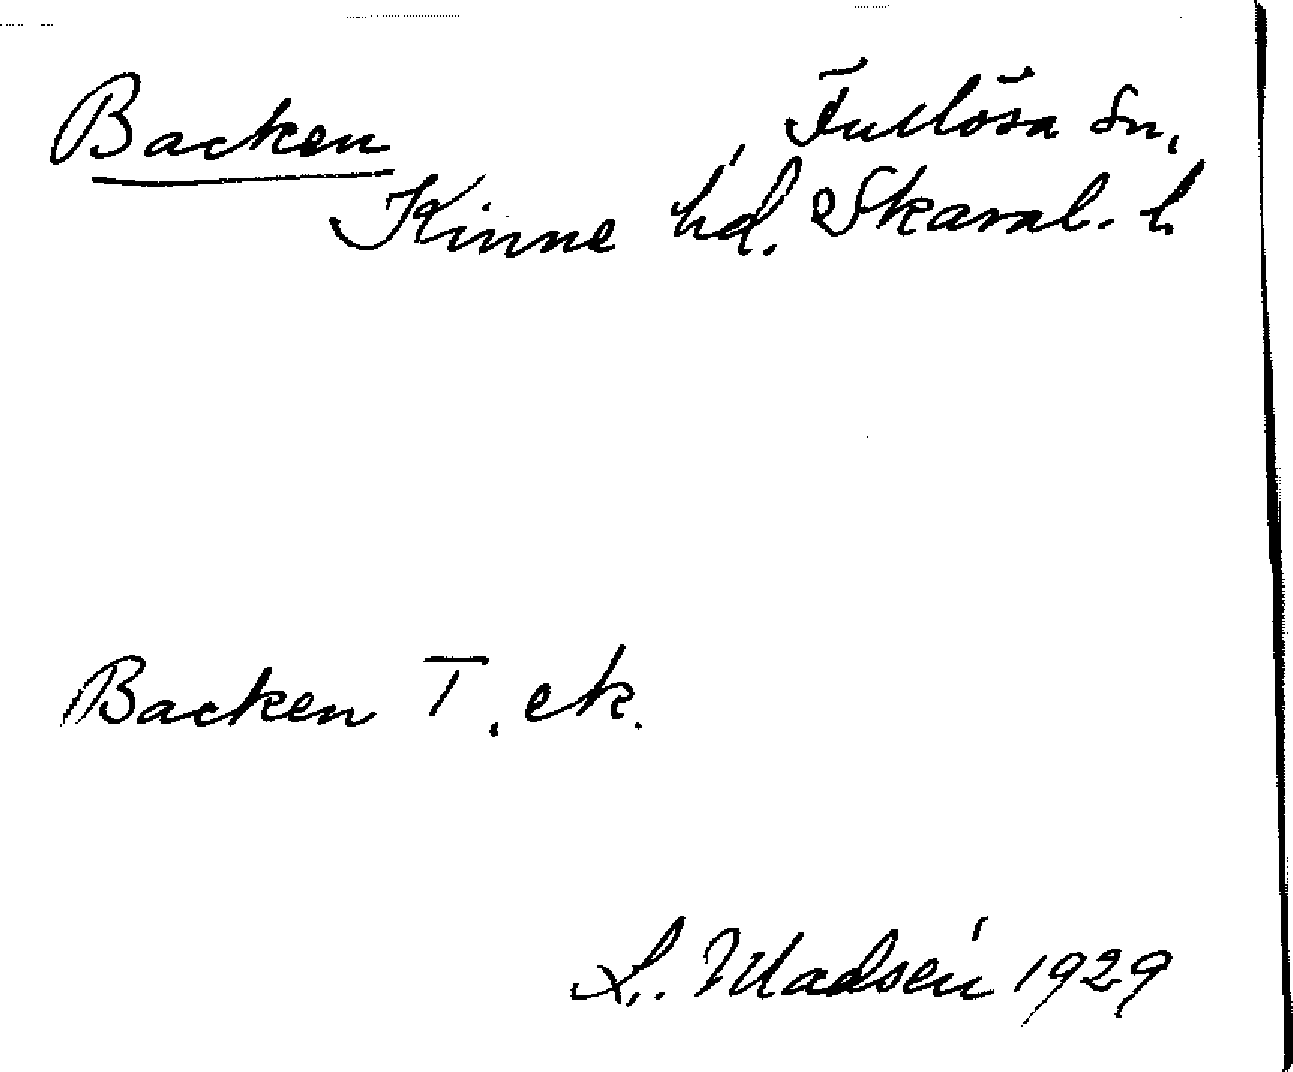 Backen Fullösa Sn,
Kinne hd. Skarabl. L
Backen T. ek.
L. Madsén 1929